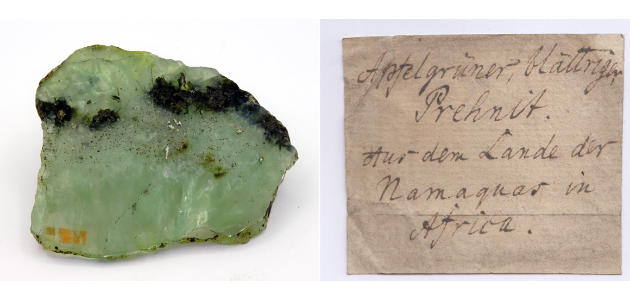 Apfelgrüner, blättriger
Prehnit.
Aus dem Lande der
Namaquas in
Africa.